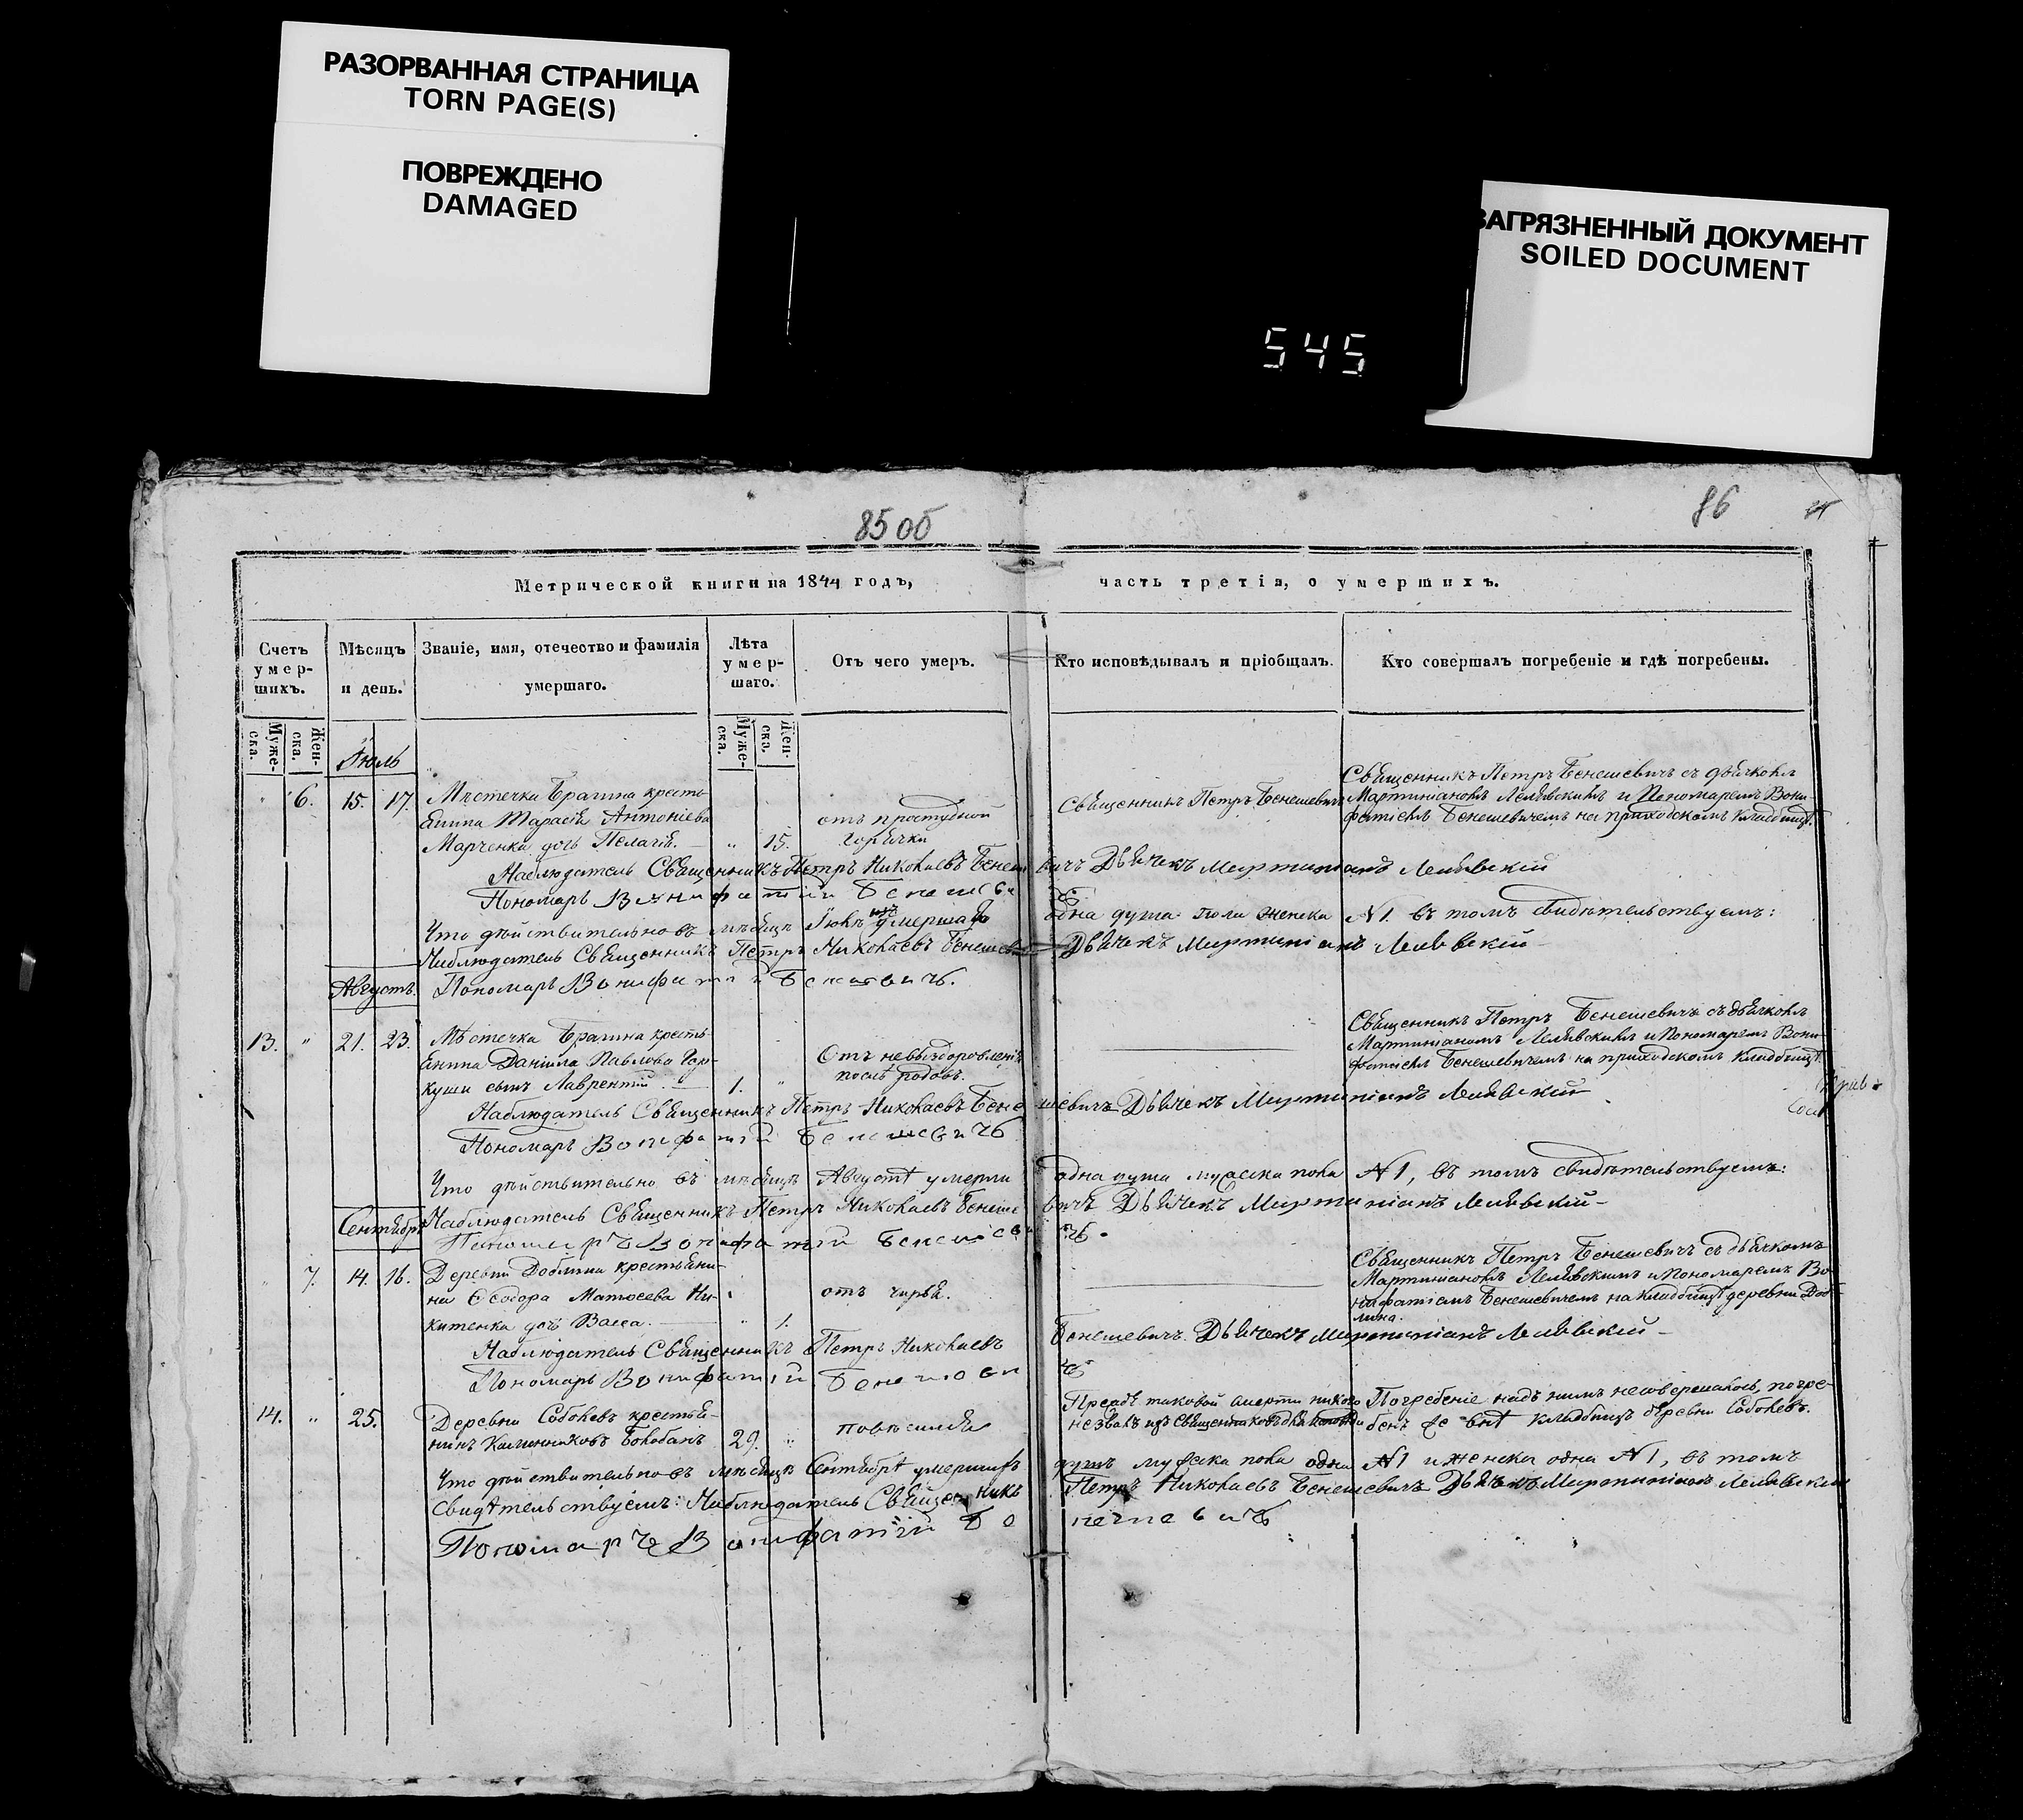 РАЗОРВАННАЯ СТРАНИЦА
TORN PAGE(S)
ПОВРЕЖДЕНО
DAMAGED
ЗАГРЯЗНЕННЫЙ ДОКУМЕНТ
SOILED DOCUMENT
545
85 об
86
Метрической книги на 1844 годъ,
часть третія, о умершихъ.
Счетъ умер-шихъ.
Мѣсяцъ и день.
Званіе, имя, отечество и фамилія умершаго.
Лѣта умер-шаго.
Отъ чего умеръ.
Кто исповѣдывалъ и пріобщалъ.
Кто совершалъ погребеніе и гдѣ погребены.
Муже-ска.
Жен-ска.
Муже-ска.
Жен-ска.
Іюль
" 6. 15. 17. Мѣстечка Брагина кресть-
янина Тарасія Антоніева
Марченка дочь Пелагія. " 15.
отъ простудной
горячки
Священникъ Петръ Бенешевичъ
Священникъ Петръ Бенешевичъ съ дьячкомъ
Мартиніаномъ Лелявскимъ и Пономаремъ Вони-
фатіемъ Бенешевичемъ на приходскомъ кладбищѣ.
Наблюдатель Священникъ Петръ Николаевъ Бенешевичъ Дьячекъ Мартиніанъ Лелявскій
Пономарь Вонифатій Бенешевичъ
Что дѣйствительно въ мѣсяцѣ Іюлѣ умершая одна душа пола женска №1 въ томъ свидѣтельствуемъ:
Наблюдатель Священникъ Петръ Николаевъ Бенешевичъ Дьячекъ Мартиніанъ Лелявскій
Августъ.
Пономарь Вонифатій Бенешевичъ.
13. " 21. 23. Мѣстечка Брагина кресть-
янина Даніила Павлова Гор-
куши сынъ Лаврентій 1. "
Отъ невыздоровленія
послѣ родовъ.
Священникъ Петръ Бенешевичъ съ дьячкомъ
Мартиніаномъ Лелявскимъ и Пономаремъ Вони-
фатіемъ Бенешевичемъ на приходскомъ кладбищѣ
Наблюдатель Священникъ Петръ Николаевъ Бенешевичъ Дьячекъ Мартиніанъ Лелявскій
Пономарь Вонифатій Бенешевичъ
Что дѣйствительно въ мѣсяцѣ Августѣ умерли одна душа мужска пола №1, въ томъ свидѣтельствуемъ:
Наблюдатель Священникъ Петръ Николаевъ Бенешевичъ Дьячекъ Мартиніанъ Лелявскій
Сентябрь
Пономарь Вонифатій Бенешевичъ.
" 7. 14. 16. Деревни Доблина крестьяни-
на Ѳеодора Матѳеева Ни-
китенка дочь Васса. " 1.
отъ чирья.
Священникъ Петръ Бенешевичъ съ дьячкомъ
Мартиніаномъ Лелявскимъ и Пономаремъ Во-
нифатіемъ Бенешевичемъ на кладбищѣ деревни Доб-
лина.
Наблюдатель Священникъ Петръ Николаевъ Бенешевичъ. Дьячекъ Мартиніанъ Лелявскій
Пономарь Вонифатій Бенешевичъ
14. " 25. Деревни Соболевъ крестья-
нинъ Калинниковъ 29. "
повѣсился
Предъ таковой смерти никого
незвалъ изъ Священниковъ для
Погребеніе надъ нимъ несовершалось, погре-
бенъ внѣ кладбищъ деревни Соболевъ.
Что дѣйствительно въ мѣсяцѣ Сентябрѣ умершихъ душъ мужска пола одна №1 и женска одна №1, въ томъ
свидѣтельствуемъ: Наблюдатель Священникъ Петръ Николаевъ Бенешевичъ Дьячекъ Мартиніанъ Лелявскій
Пономарь Вонифатій Бенешевичъ